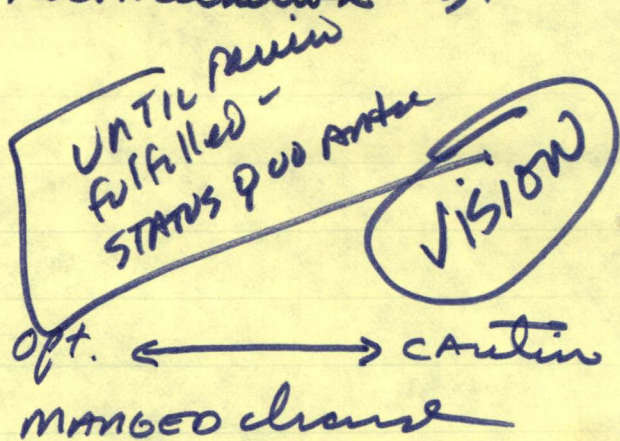 UNTIL
fulfilled -
STATUS QUO
VISION
Opt. ↔ CAution
MANGED change